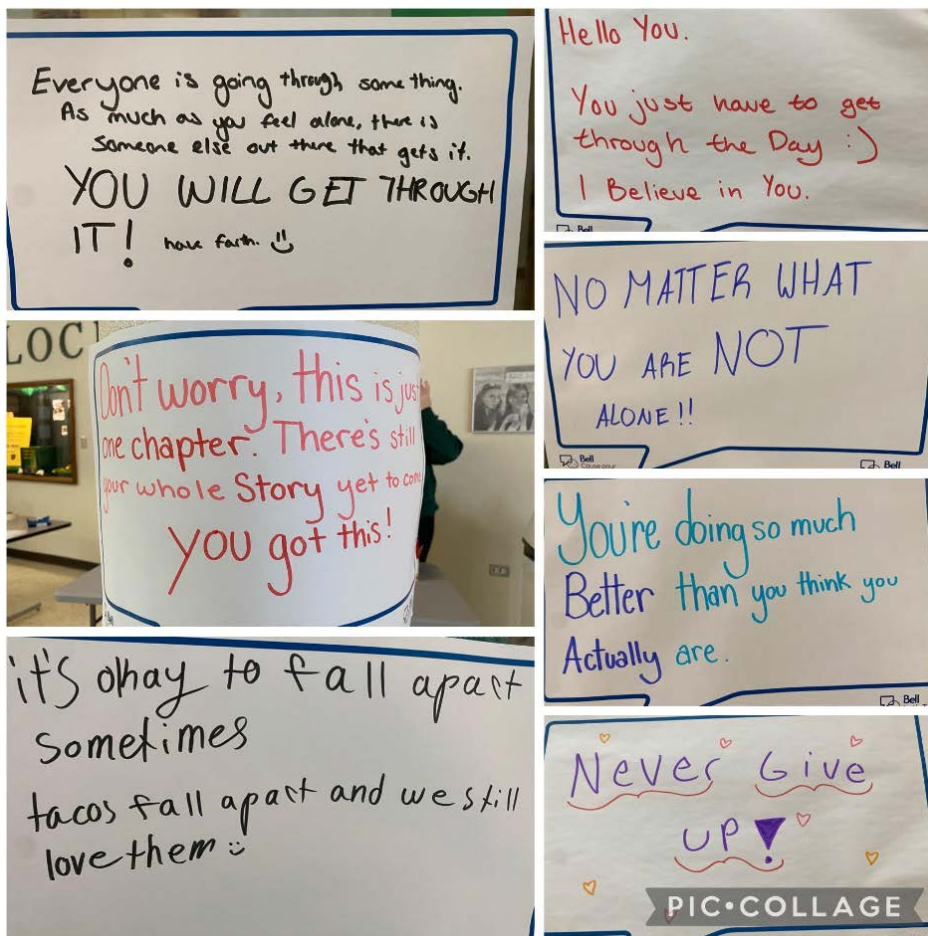 Everyone is going through something.
As much as you feel alone, there is
someone else out there that gets it.
YOU WILL GET THROUGH
IT! have faith.
LOC
Don't worry, this is jus
one chapter. There's still
your whole Story yet to com
YOU got this!
it's okay to fall apart
sometimes
tacos fall apart and we still
love them
Hello You.
You just have to get
through the Day :)
I Believe in You.
Bell
NO MATTER WHAT
YOU ARE NOT
ALONE!!
Bell
Cause pour
Bell
You're doing so much
Better than you think you
Actually are.
Bell
Never Give
UP!
PIC•COLLAGE